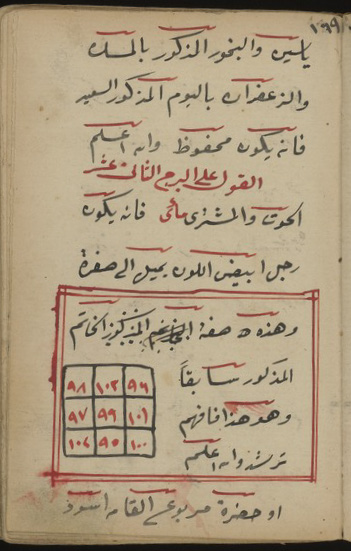 ١٩٩
ياسين والبخور المذكور بالمسك
والزعفران باليوم المذكور السعيد
فانه يكون محفوظ والله اعلم
القول على البرج الثاني عشر
الحوت والمشترى مائى فانه يكون
رجل ابيض اللون يميل الى صفرة
وهذه صفة المذكور الخاتم
المذكور سابقاً
وهو هذا فافهم
ترشد والله اعلم
٩٨ ١٠٣ ٩٦
٩٧ ٩٩ ١٠١
١٠٢ ٩٥ ١٠٠
او حضرة مربوع القامه اسود